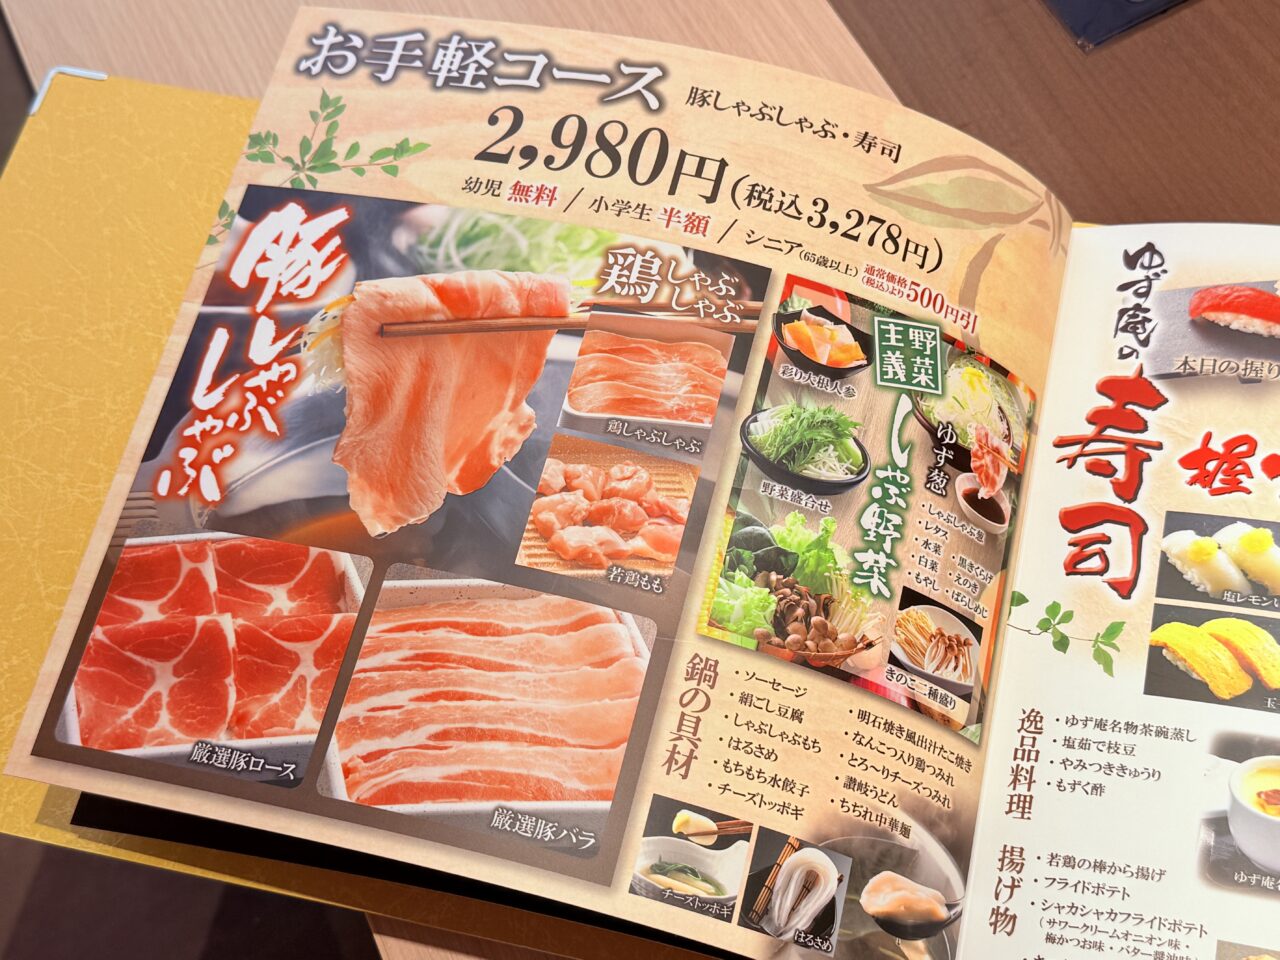 お手軽コース
豚しゃぶしゃぶ・寿司
2,980円(税込3,278円)
幼児 無料 / 小学生 半額 / シニア(65歳以上) 通常価格(税込)より500円引
豚しゃぶしゃぶ
鶏しゃぶしゃぶ
鶏しゃぶしゃぶ
若鶏もも
厳選豚ロース
厳選豚バラ
野菜主義
しゃぶ野菜
彩り大根人参
野菜盛合せ
ゆず葱
・しゃぶしゃぶ葱
・レタス
・水菜
・白菜
・もやし
・黒きくらげ
・えのき
・ばらしめじ
きのこ二種盛り
鍋の具材
・ソーセージ
・絹ごし豆腐
・しゃぶしゃぶもち
・はるさめ
・もちもち水餃子
・チーズトッポギ
・明石焼き風出汁たこ焼き
・なんこつ入り鶏つみれ
・とろ〜りチーズつみれ
・讃岐うどん
・ちぢれ中華麺
チーズトッポギ
はるさめ
ゆず庵の
寿司
本日の握り
握
塩レモン
玉
逸品料理
・ゆず庵名物茶碗蒸し
・塩茹で枝豆
・やみつききゅうり
・もずく酢
ゆず庵名
揚げ物
・若鶏の棒から揚げ
・フライドポテト
・シャカシャカフライドポテト
(サワークリームオニオン味・
梅かつお味・バター醤油味)